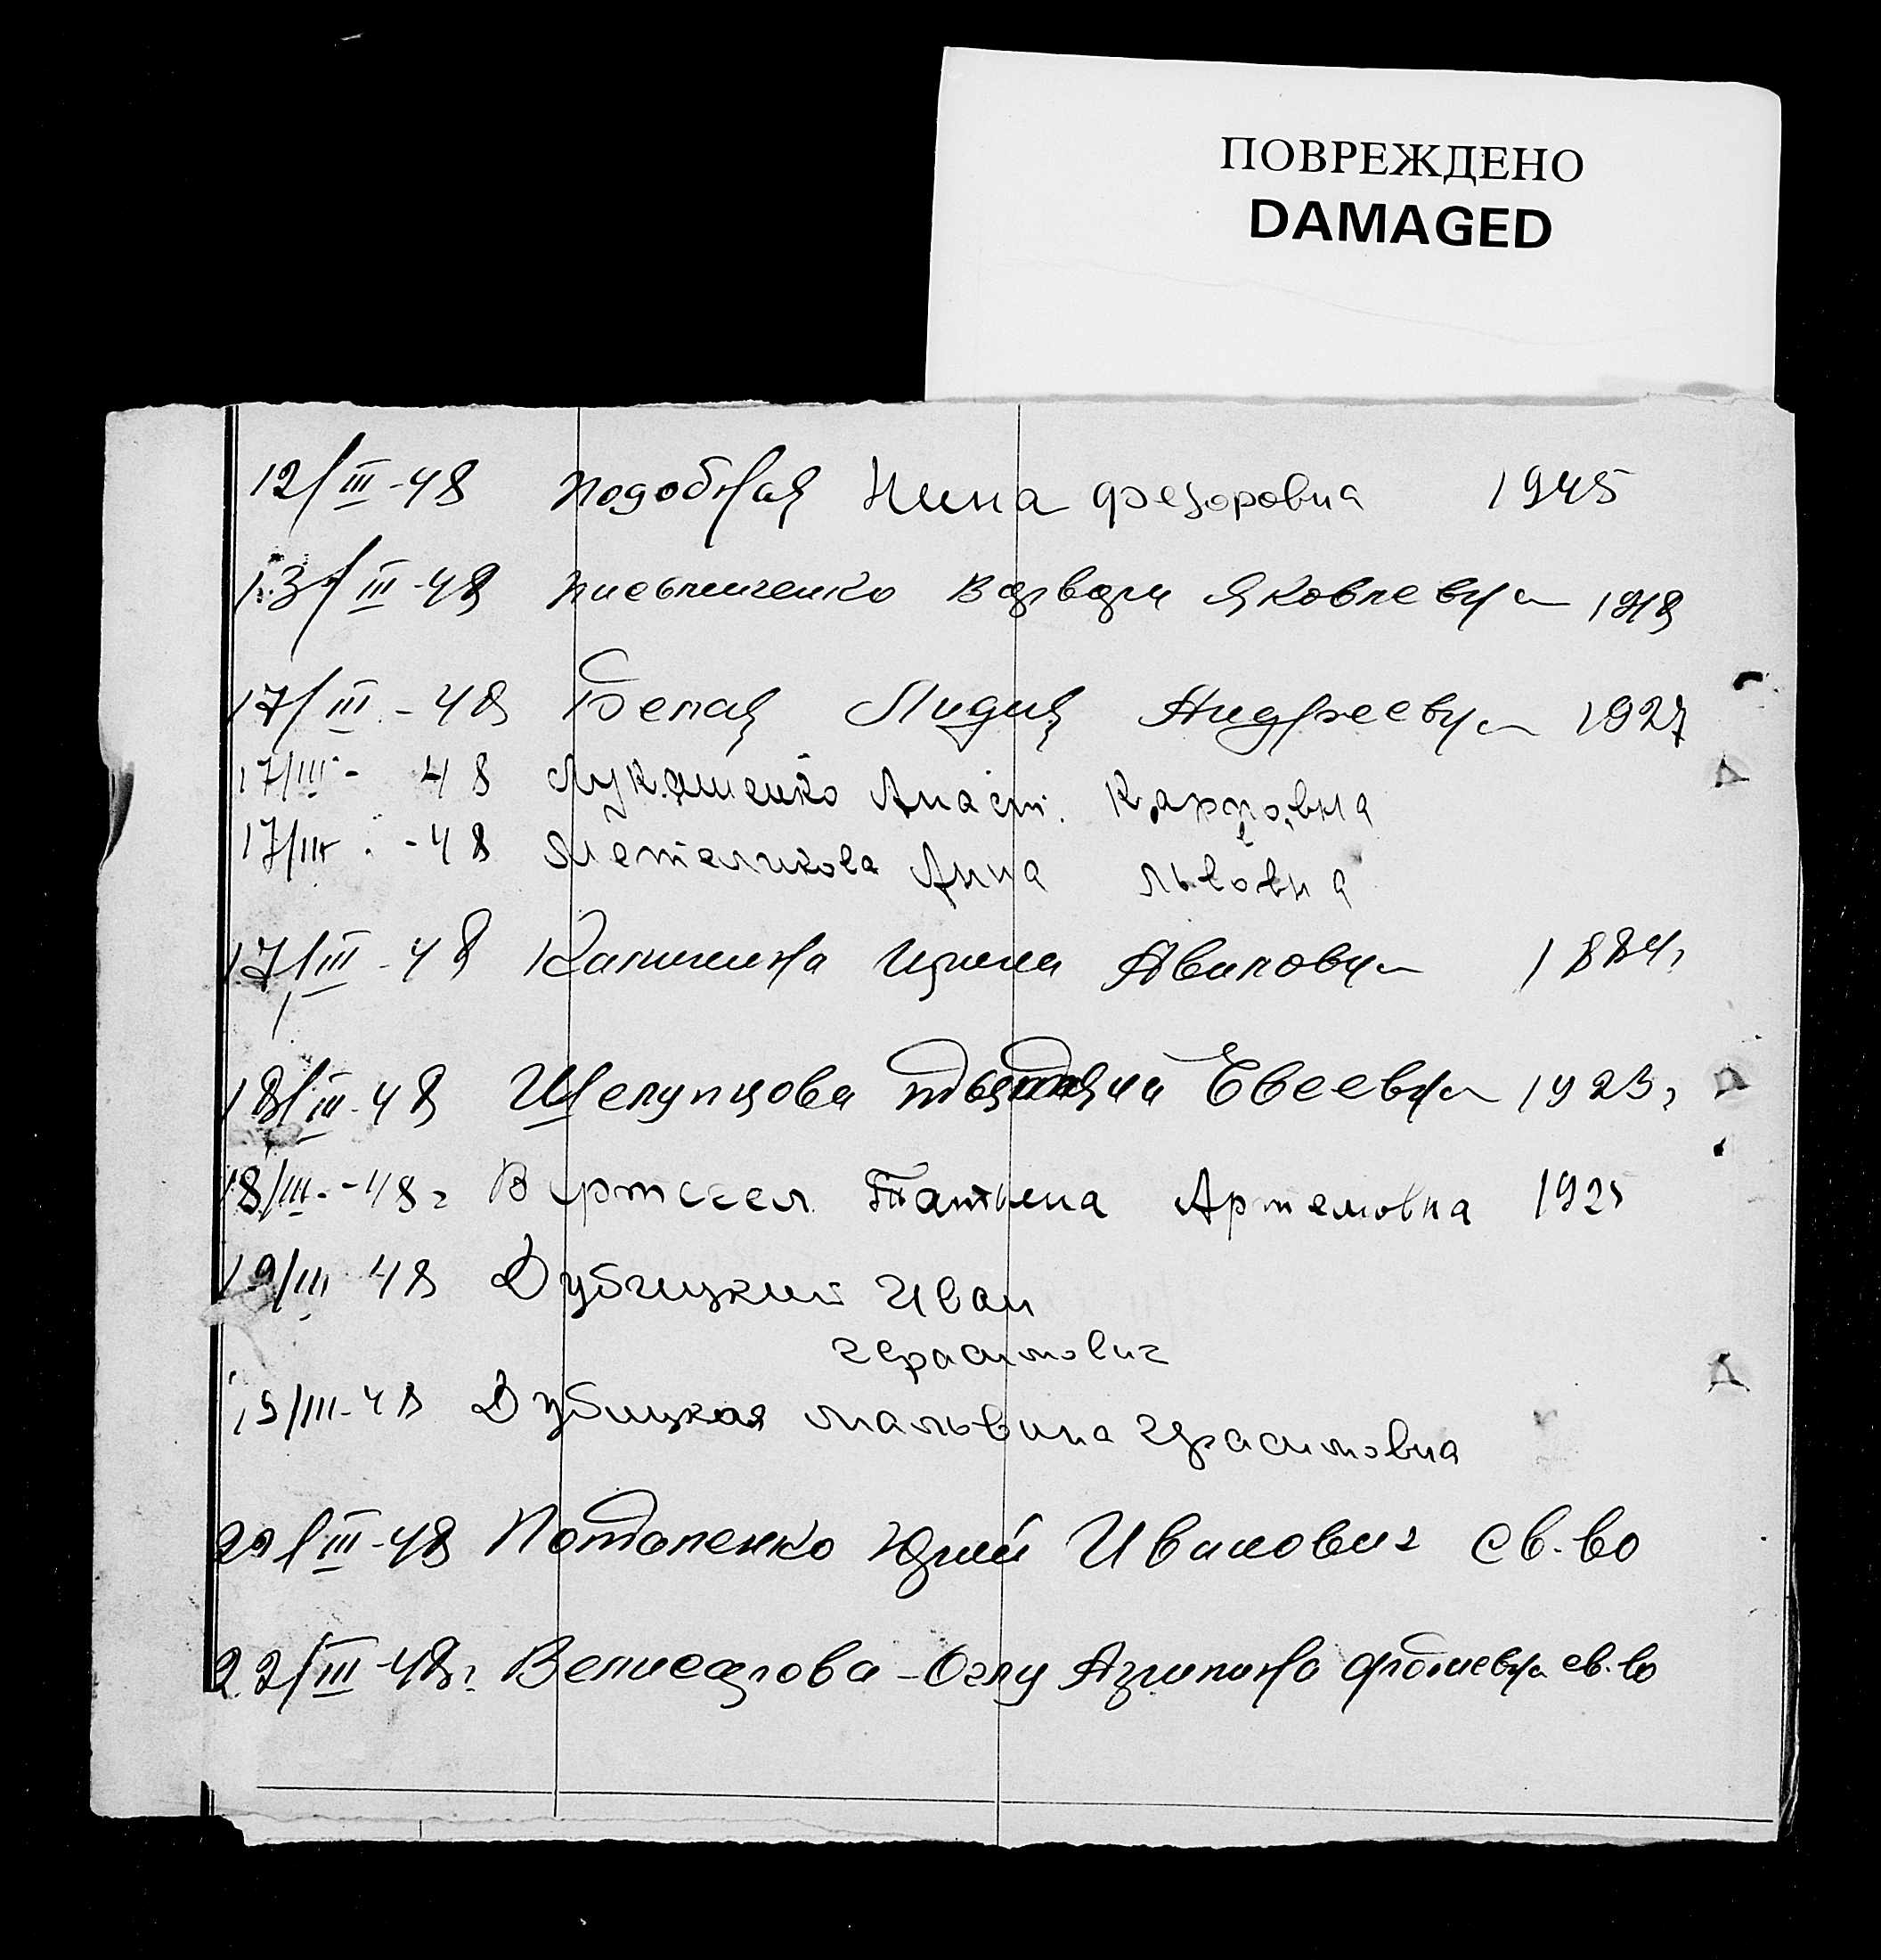 ПОВРЕЖДЕНО
DAMAGED
12/III-48 Подобная Нина Федоровна 1945
13/III-48 Варвара Яковлевна 1918
17/III-48 Белая Лидия Андреевна 1927
17/III- 48 Лукашенко Анаст. Карповна
17/III-48 Метеликова Анна Львовна
17/III-48 Калинина Ирина 1884г
18/III-48 Шелупцова Евсеевна 1923г
18/III-48г Татьяна Артемовна 1925
19/III 48 Дубицкий Иван
Герасимович
19/III-48 Дубицкая Мальвина Герасимовна
20/III-48 Потапенко Юрий Иванович св-во
22/III-48г -Оглу Агрипина св-во